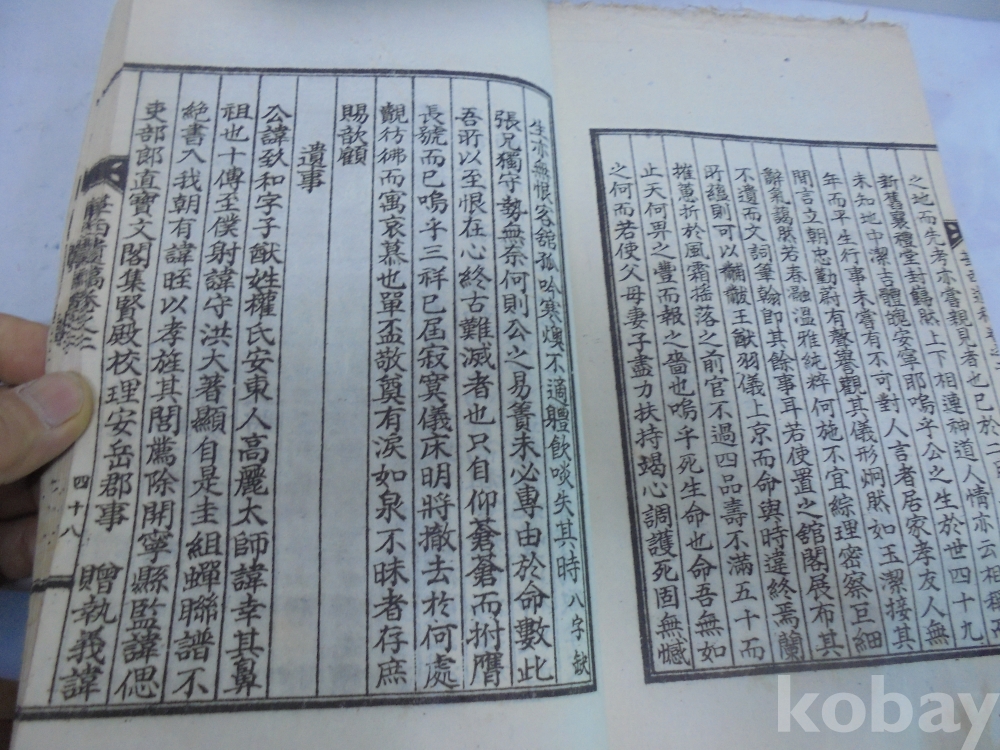 之地而先考亦嘗親見者也已於
新舊襄禮堂封鬣肰上下相連神道人情亦云相
未知地中潔吉體魄安寧耶嗚乎公之生於世四十九
年而平生行事未嘗有不可對人言者居家孝友人無
間言立朝忠勤蔚有聲譽觀其儀形炯肰如玉潔接其
辭氣藹肰若春融溫雅純粹何施不宜綜理密察巨細
不遺而文詞筆翰卽其餘事耳若使置之舘閣展布其
所蘊則可以黼黻王猷羽儀上京而命與時違終焉蘭
摧蕙折於風霜搖落之前官不過四品壽不滿五十而
止天何畀之豐而報之嗇也嗚乎死生命也命吾無如
之何而若使父母妻子盡力扶持竭心調護死固無憾
生亦無恨客舘孤吟寒燠不適軆飮啖失其時 八字缺
張兄獨守勢無奈何則公之易簀未必專由於命數此
吾所以至恨在心終古難滅者也只自仰蒼蒼而拊膺
長號而已嗚乎三祥已屆寂寞儀床明將撤去於何處
覩彷彿而寓哀慕也單盃敬奠有淚如泉不昧者存庶
賜歆顧
遺事
公諱 和字子猷姓權氏安東人高麗太師諱幸其鼻
祖也十傳至僕射諱守洪大著顯自是圭組蟬聯譜不
絶書入我朝有諱 以孝旌其閭薦除開寧縣監諱偲
吏部郎直寶文閣集賢殿校理安岳郡事 贈執義諱
四十八
kobay